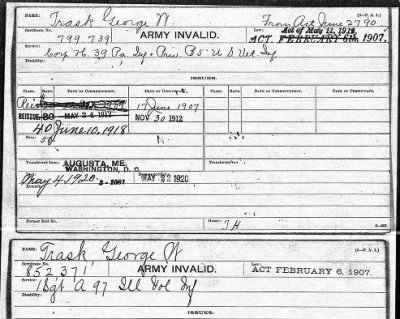 NAME: Trask George W. (3—P. A. S.) From Act June 27 90
Certificate No. 799,739 ARMY INVALID. Act of May 11, 1912. ACT FEBRUARY 6th, 1907.
Service: Corp H. 39 Pa Inf + Priv. B 5" U S Vet Inf
Disability:
ISSUES.
CLASS. RATE. DATE OF COMMENCEMENT. DATE OF CERTIFICATE. CLASS. RATE. DATE OF COMMENCEMENT. DATE OF CERTIFICATE.
17 June 1907
REISSUE. 30 MAY 24 1912 NOV 30 1912
40 June 10, 1918
50
Transferred from AUGUSTA, ME.
WASHINGTON, D. C.
May 4, 1920 MAY 22 1920
Former Roll No. Home: T H
NAME: Trask, George W (3—P. A. S.)
Certificate No. 852,371 ARMY INVALID. ACT FEBRUARY 6, 1907.
Service: Sgt A 97 Ill Vol Inf
Disability:
ISSUES.